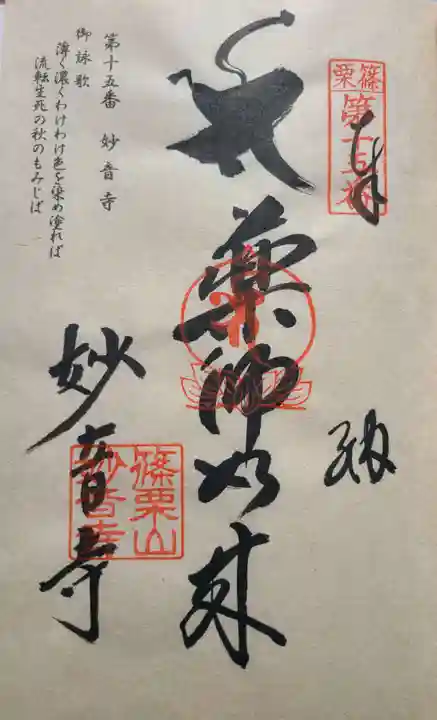 篠栗
第十五番
奉
納
薬師如来
妙音寺
篠栗山
妙音寺
第十五番 妙音寺
御詠歌
薄く濃くわけわけ色を染め塗れば
流転生死の秋のもみじば